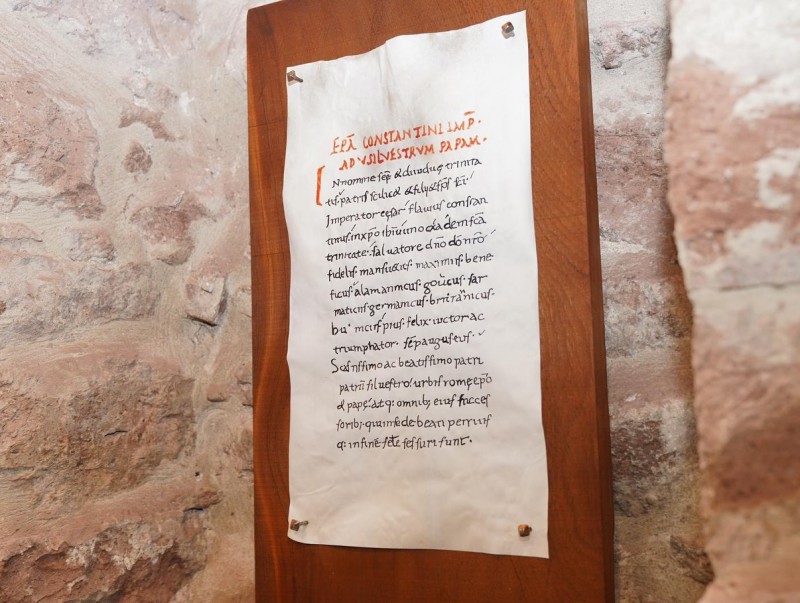 EPĀ CONSTANTINI IMP̄·
AD VSILVESTRVM PAPAM·
IN nomine sc̄ę & diuiduę trinita
tis· patris scilic& & filii & sp̄s sc̄i·
Imperator cęsar flauius constan
tinus· in xp̄o ihū uno
trinitate· saluatore dn̄o dō nrō
fidelis· mansu&us· maximus· bene
ficus· alamannicus· gothicus· sar
maticus· germanicus· britannicus·
hunnicus pius· felix· uictor ac
triumphator· sēp augustus·
Sc̄issimo ac beatissimo patri
patrū siluestro· urbis romę epō
& papę· atq: omnib; eius succes
sorib;· qui in sede beati petri usq
q: in finē sc̄li sessuri sunt·